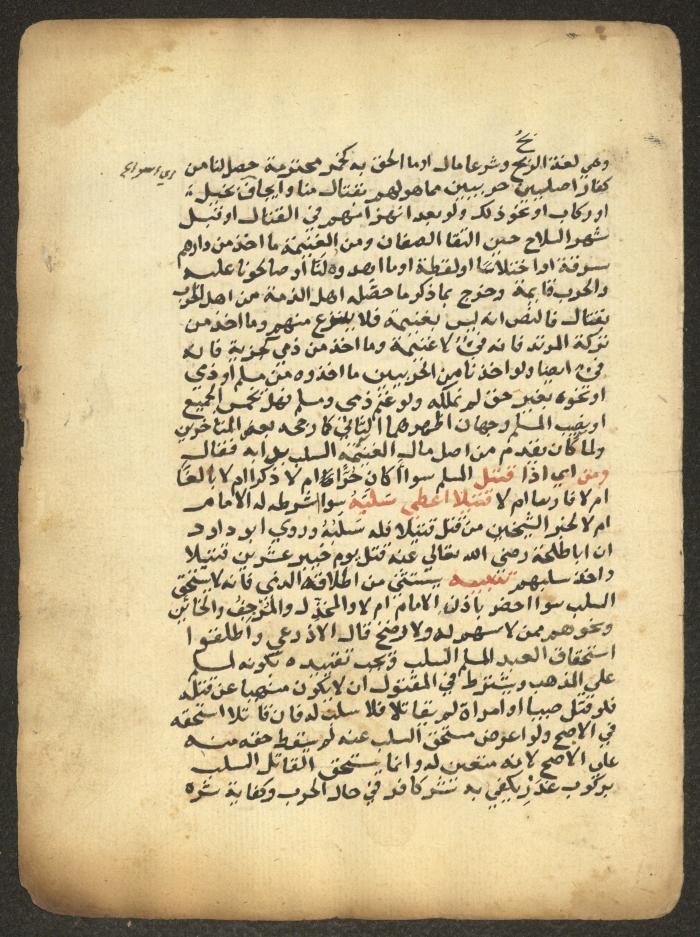 وهي لغة الربح وشرعا مال او ما الحق به كخمر محترمة حصل لنا من
كفار اصليين حربيين مما هو لهم بقتال منا وايجاف بخيل
او ركاب او نحو ذلك ولو بعد انهزامهم في القتال او قبل
شهر السلاح حين التقا الصفان ومن الغنيمة ما اخذ من دارهم
سرقة او اختلاسا او لقطة او ما اهدوه لنا او صالحونا عليه
والحرب قايمة وخرج بما ذكر ما حصله اهل الذمة من اهل الحرب
بقتال فالنص انه ليس بغنيمة فلا ينزع منهم وما اخذ من
تركة المرتد فانه فيء لا غنيمة وما اخذ من ذمي كجزية فانه
فيء ايضا ولو اخذنا من الحربيين ما اخذوه من مسلم او ذمي
او نحوه بغير حق لم نملكه ولو غنم ذمي ومسلم فهل يخمس الجميع
او نصيب المسلم وجهان اظهرهما الثاني كما رجحه بعض المتاخرين
ولما كان يقدم من اصل مال الغنيمة السلب بدا به فقال
ومن اي اذا قتل المسلم سوا كان حرا ام لا ذكرا ام لا بالغا
ام لا فارسا ام لا قتيلا اعطي سلبه سوا شرطه له الامام
ام لا لخبر الشيخين من قتل قتيلا فله سلبه وروي ابو داود
ان ابا طلحة رضي الله تعالي عنه قتل يوم خيبر عشرين قتيلا
واخذ سلبهم تنبيه يستثني من اطلاقه الذمي فانه لا يستحق
السلب سوا احضر باذن الامام ام لا والمخذل والمرجف والخاين
ونحوهم ممن لا سهم له ولا رضخ قال الاذرعي واطلقوا
استحقاق العبد المسلم السلب ويجب تقييده بكونه لمسلم
علي المذهب ويشترط في المقتول ان لا يكون منهيا عن قتله
فلو قتل صبيا او امراة لم يقاتلا فلا سلب له فان قاتلا استحقه
في الاصح ولو اعرض مستحق السلب عنه لم يسقط حقه منه
علي الاصح لانه متعين له وانما يستحق القاتل السلب
بركوب غرر يكفي به شر كافر في حال الحرب وكفاية شره